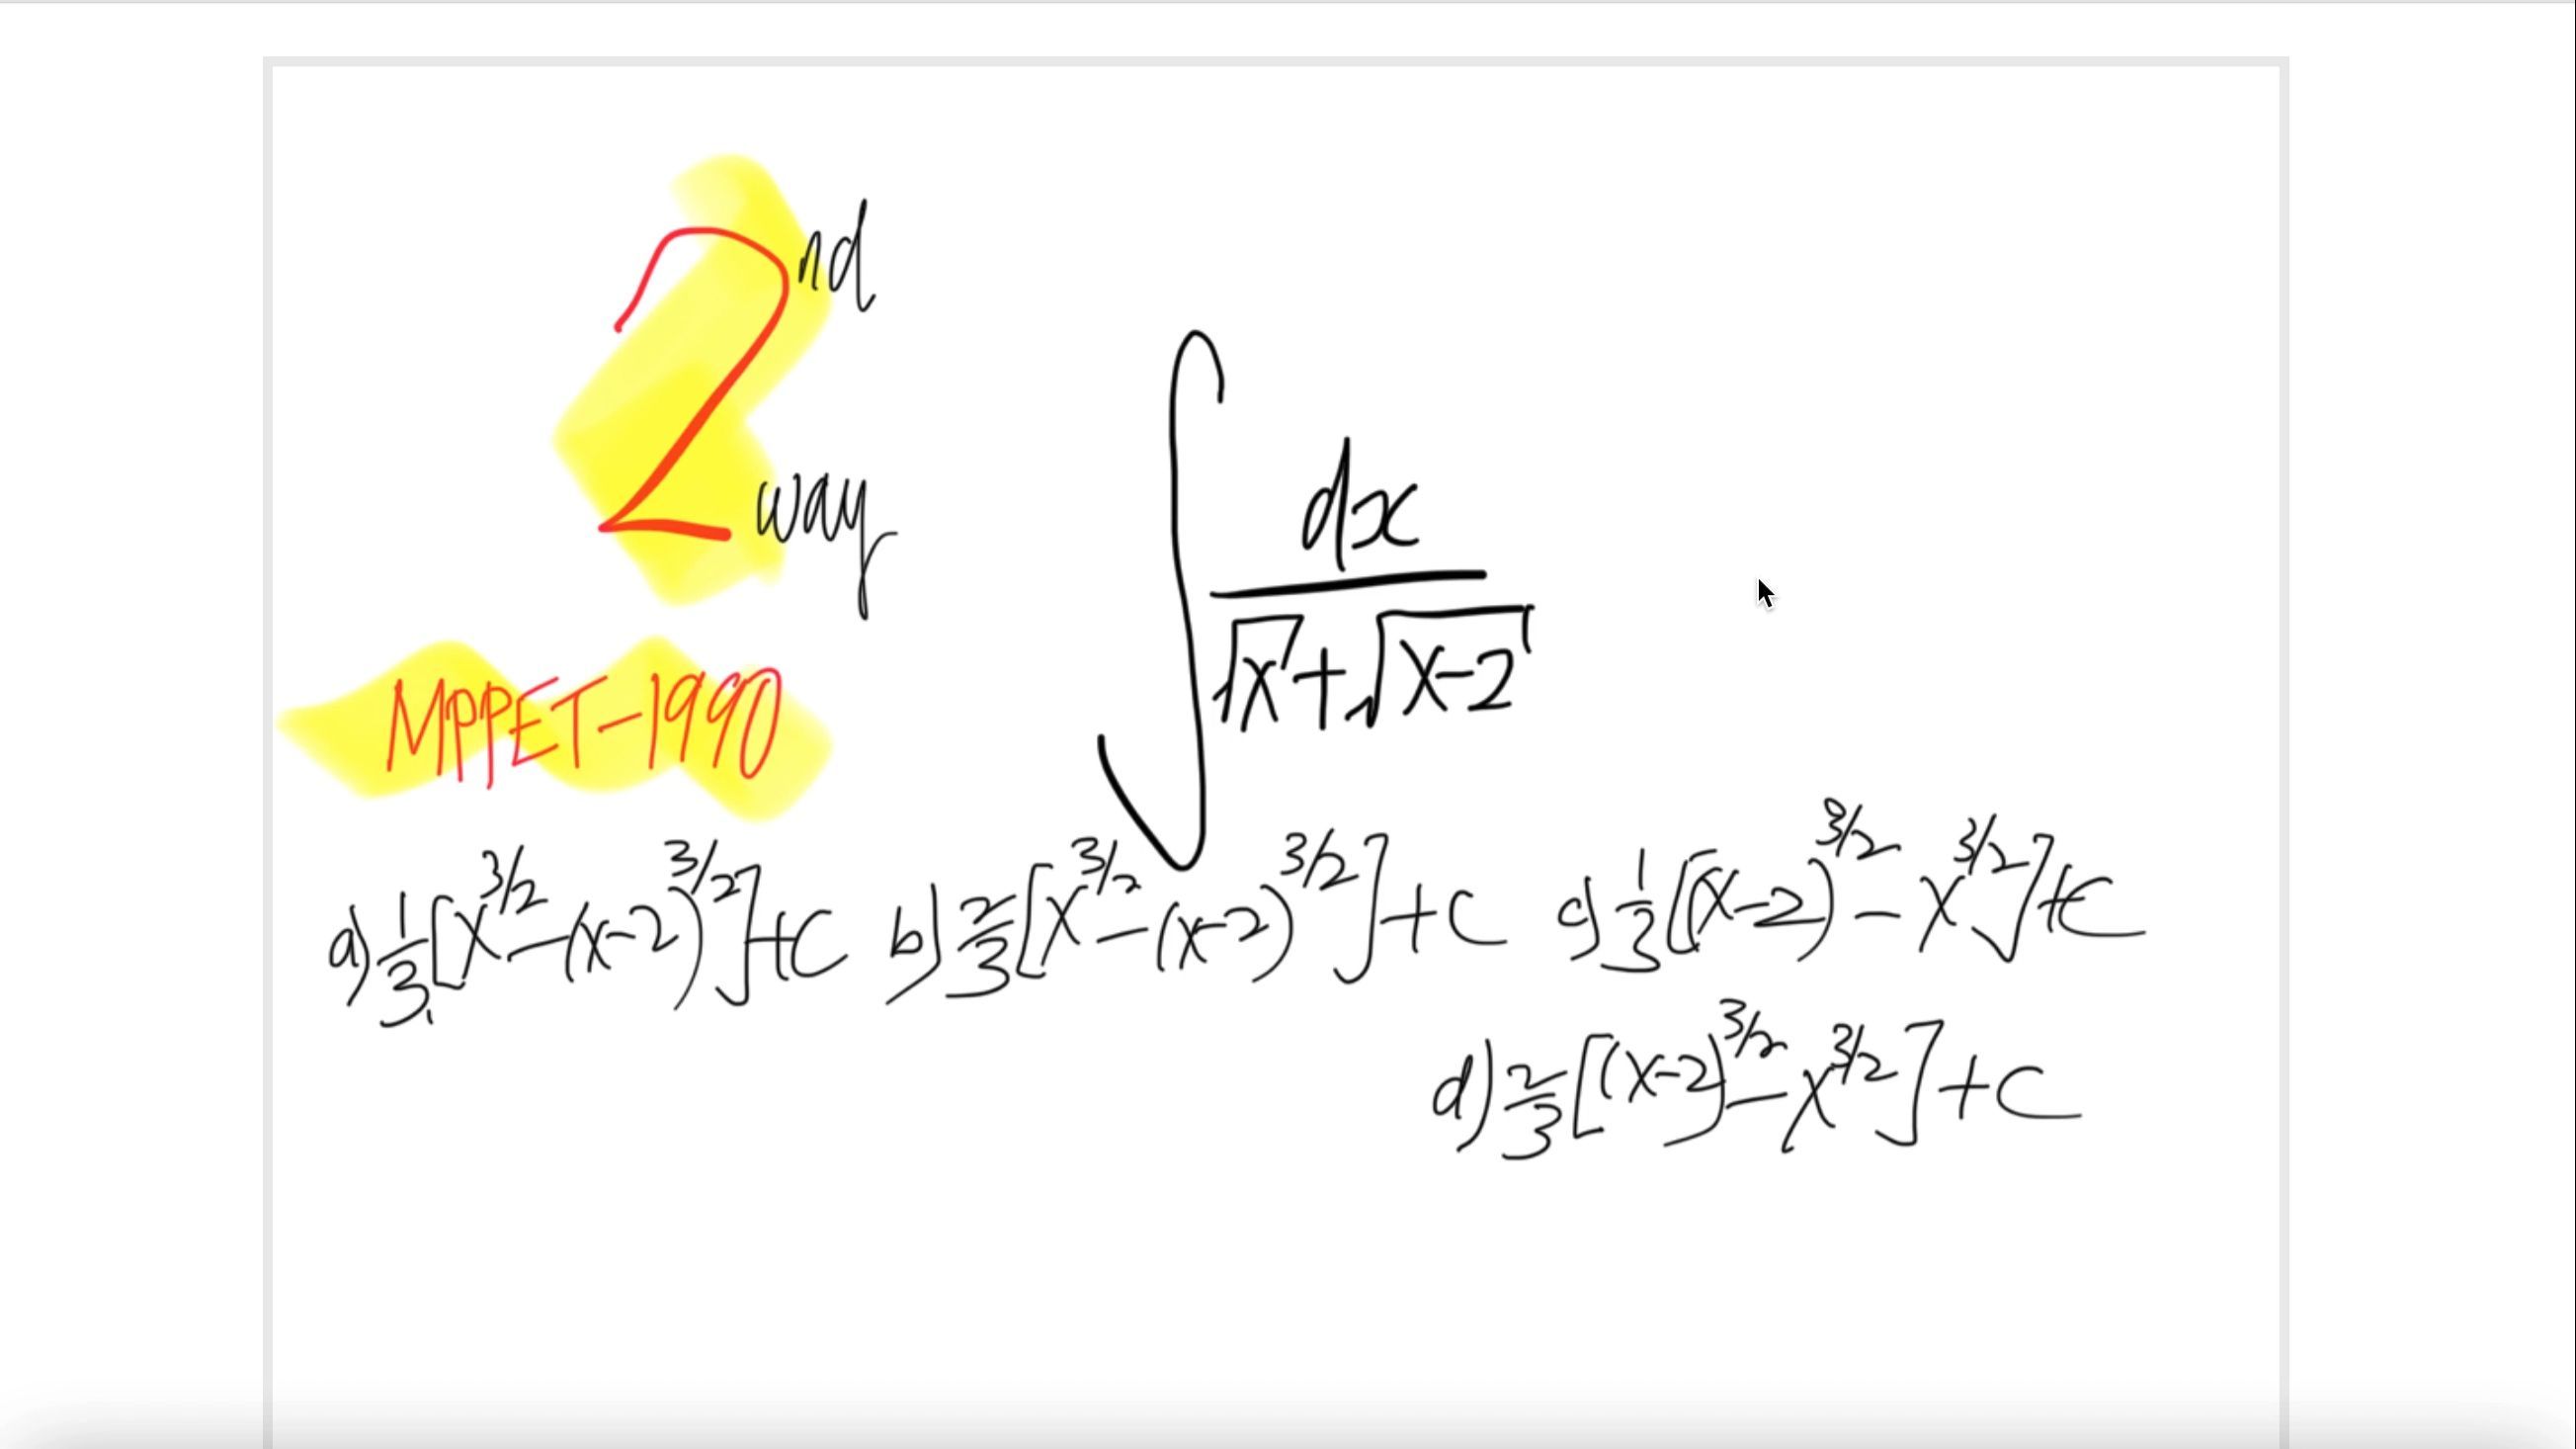 2nd
way
∫ dx / (√x + √x-2)
MPPET-1990
a) 1/3 [x^3/2 - (x-2)^3/2] + C b) 2/3 [x^3/2 - (x-2)^3/2] + C c) 1/3 [(x-2)^3/2 - x^3/2] + C
d) 2/3 [(x-2)^3/2 - x^3/2] + C